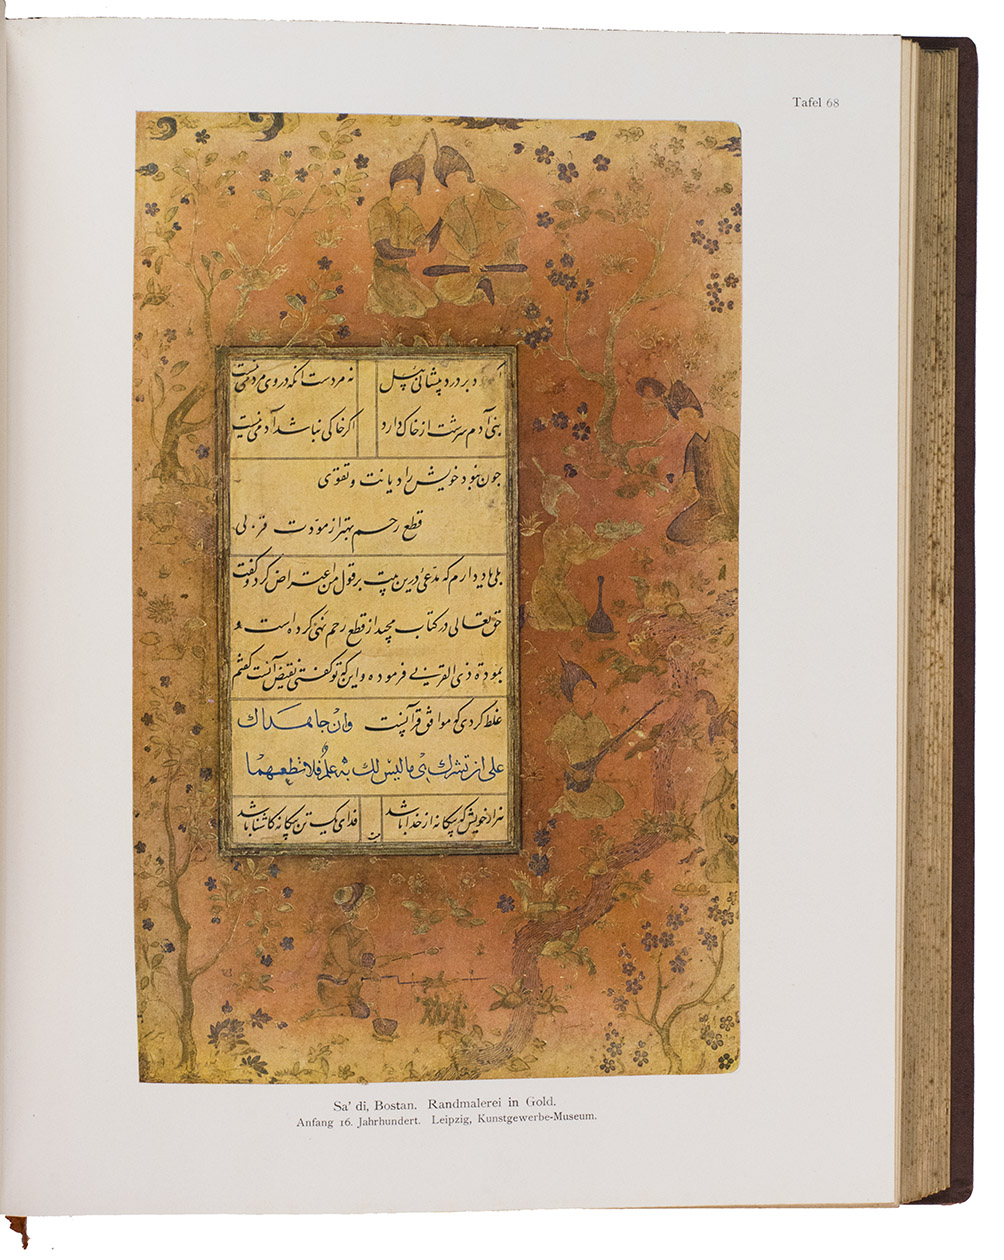 Tafel 68
ود بردرد پیشانی پیل نه مردست آنکه در وی مردمی نیست
بنی آدم سرشت از خاک دارد اگر خاکی نباشد آدمی نیست
چون نبود خویش را دیانت و تقوی
قطع رحم بهتر از مودّت قربی
بلی یاد دارم که مدعی درین بیت بر قول من اعتراض کرد و گفت
حق تعالی در کتاب مجید از قطع رحم نهی کرده است و
بمودة ذی القربی فرموده و این که تو گفتی نقیض آنست گفتم
غلط کردی که موافق قرآنست وَانْ جاهداك
علی ان تشرك بی ما لیس لك به علم فلا تطعهما
هزار خویش که بیگانه از خدا باشد فدای یک تن بیگانه کاشنا باشد
Sa' di, Bostan. Randmalerei in Gold.
Anfang 16. Jahrhundert. Leipzig, Kunstgewerbe-Museum.